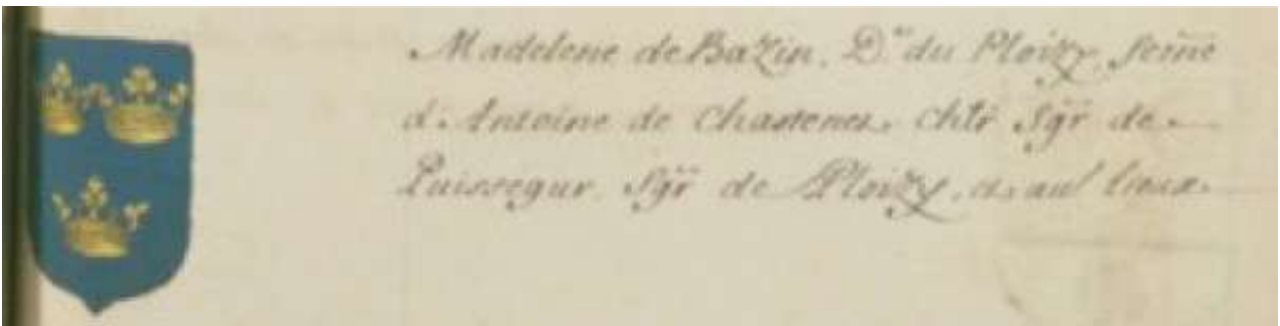 Madelene de Bazin. D.e du Ploizy, feme
d'Antoine de Chastenet, chlr Sgr de
Puissegur. Sgr de Ploizy, et au.t lieux.